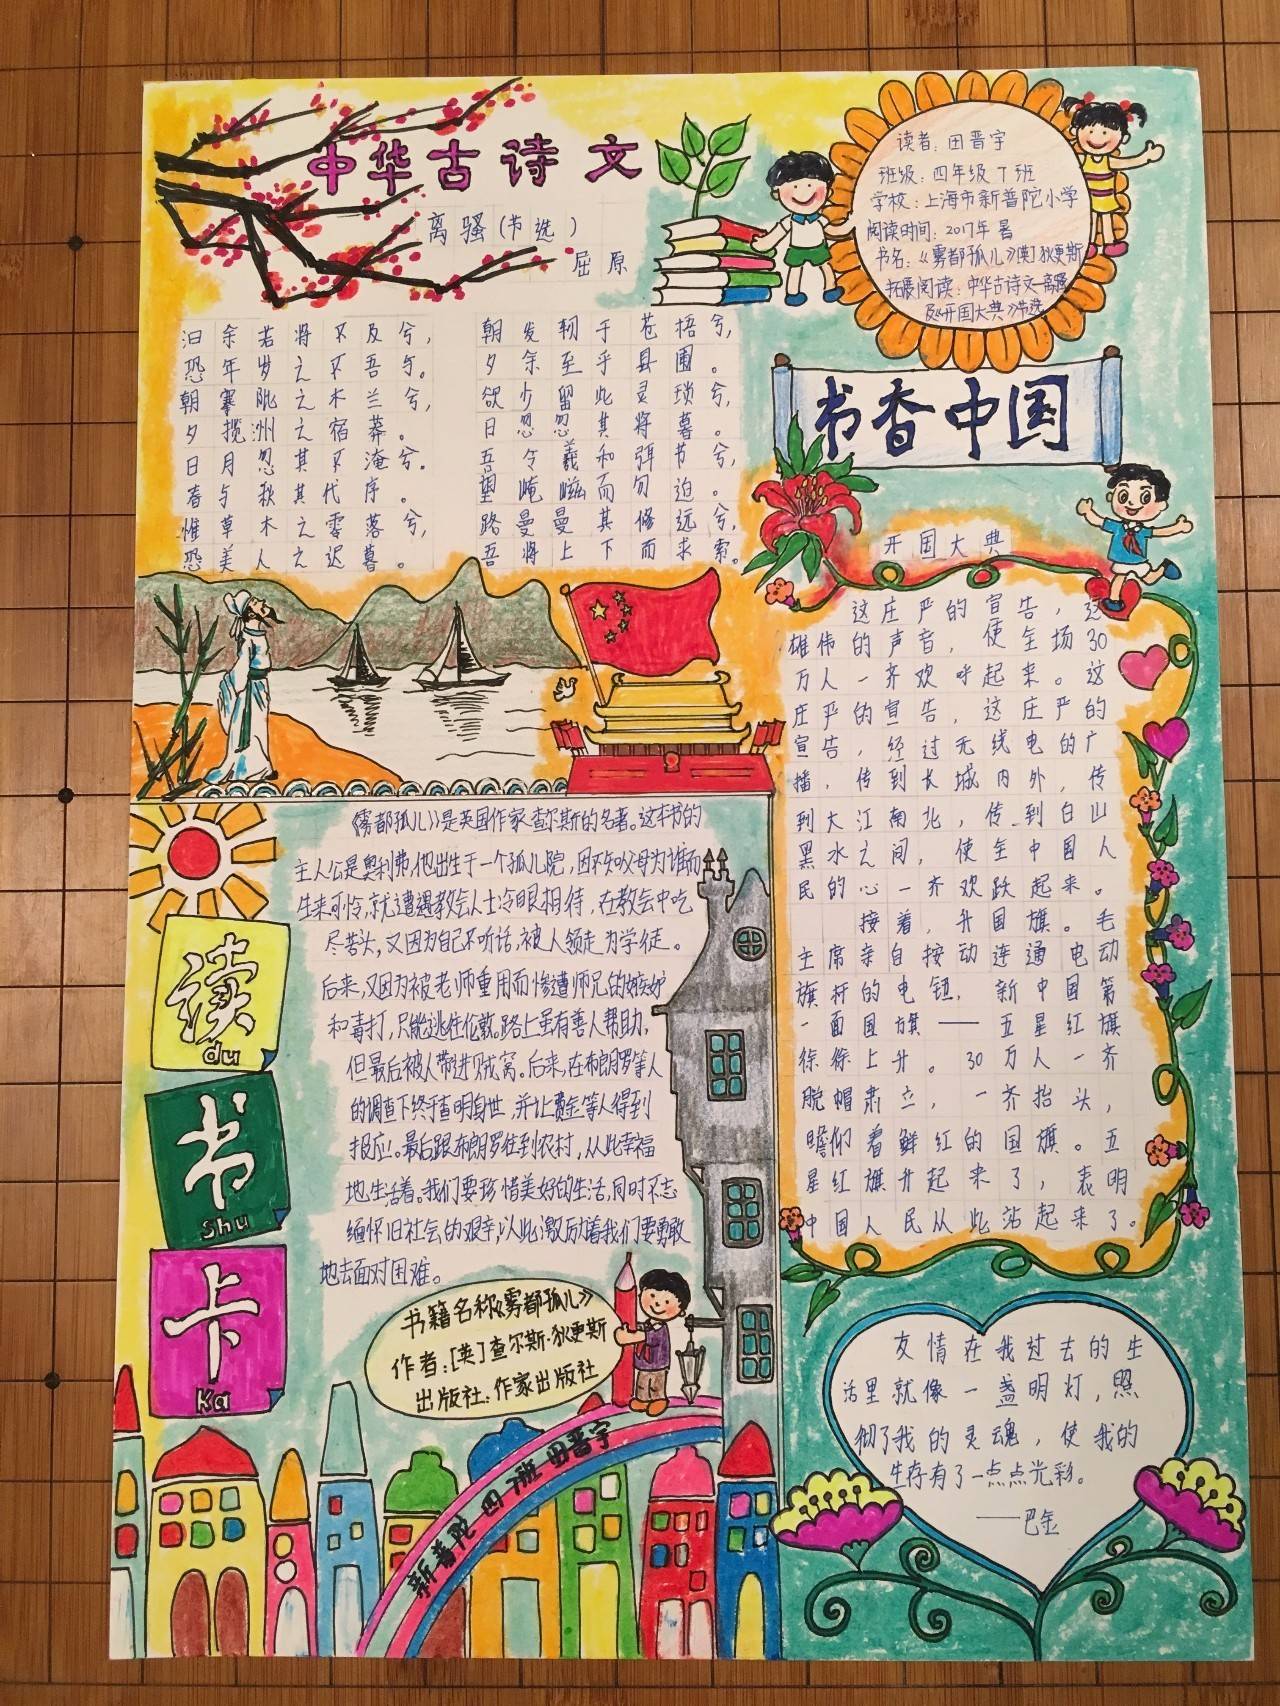 中华古诗文
离骚(节选)
屈原
汩余若将不及兮，
恐年岁之不吾与。
朝搴阰之木兰兮，
夕揽洲之宿莽。
日月忽其不淹兮。
春与秋其代序。
惟草木之零落兮，
恐美人之迟暮。
朝发轫于苍梧兮，
夕余至乎县圃。
欲少留此灵琐兮，
日忽忽其将暮。
吾令羲和弭节兮，
望崦嵫而勿迫。
路曼曼其修远兮，
吾将上下而求索。
读者：田晋宇
班级：四年级7班
学校：上海市新普陀小学
阅读时间：2017年暑
书名：《雾都孤儿》[英]狄更斯
拓展阅读：中华古诗文—离骚
及《开国大典》节选
书香中国
开国大典
这庄严的宣告，这
雄伟的声音，使全场30
万人一齐欢呼起来。这
庄严的宣告，这庄严的
宣告，经过无线电的广
播，传到长城内外，传
到大江南北，传到白山
黑水之间，使全中国人
民的心一齐欢跃起来。
接着，升国旗。毛
主席亲自按动连通电动
旗杆的电钮，新中国第
一面国旗——五星红旗
徐徐上升。30万人一齐
脱帽肃立，一齐抬头，
瞻仰着鲜红的国旗。五
星红旗升起来了，表明
中国人民从此站起来了。
读
du
书
Shu
卡
Ka
《雾都孤儿》是英国作家查尔斯的名著。这本书的
主人公是奥利弗，他出生于一个孤儿院，因不知父母为谁而
生来可怜，就遭遇教会人士冷眼相待，在教会中吃
尽苦头，又因为自己不听话，被人领走为学徒。
后来，又因为被老师重用而惨遭师兄的嫉妒
和毒打，只能逃往伦敦。路上虽有善人帮助，
但最后被人带进贼窝。后来，在布朗罗等人
的调查下终于查明身世，并让费金等人得到
报应。最后跟布朗罗住到农村，从此幸福
地生活着。我们要珍惜美好的生活，同时不忘
缅怀旧社会的艰辛，以此激励着我们要勇敢
地去面对困难。
书籍名称《雾都孤儿》
作者：[英]查尔斯·狄更斯
出版社：作家出版社
新普陀 四7班 田晋宇
友情在我过去的生
活里就像一盏明灯，照
彻了我的灵魂，使我的
生存有了一点点光彩。
——巴金